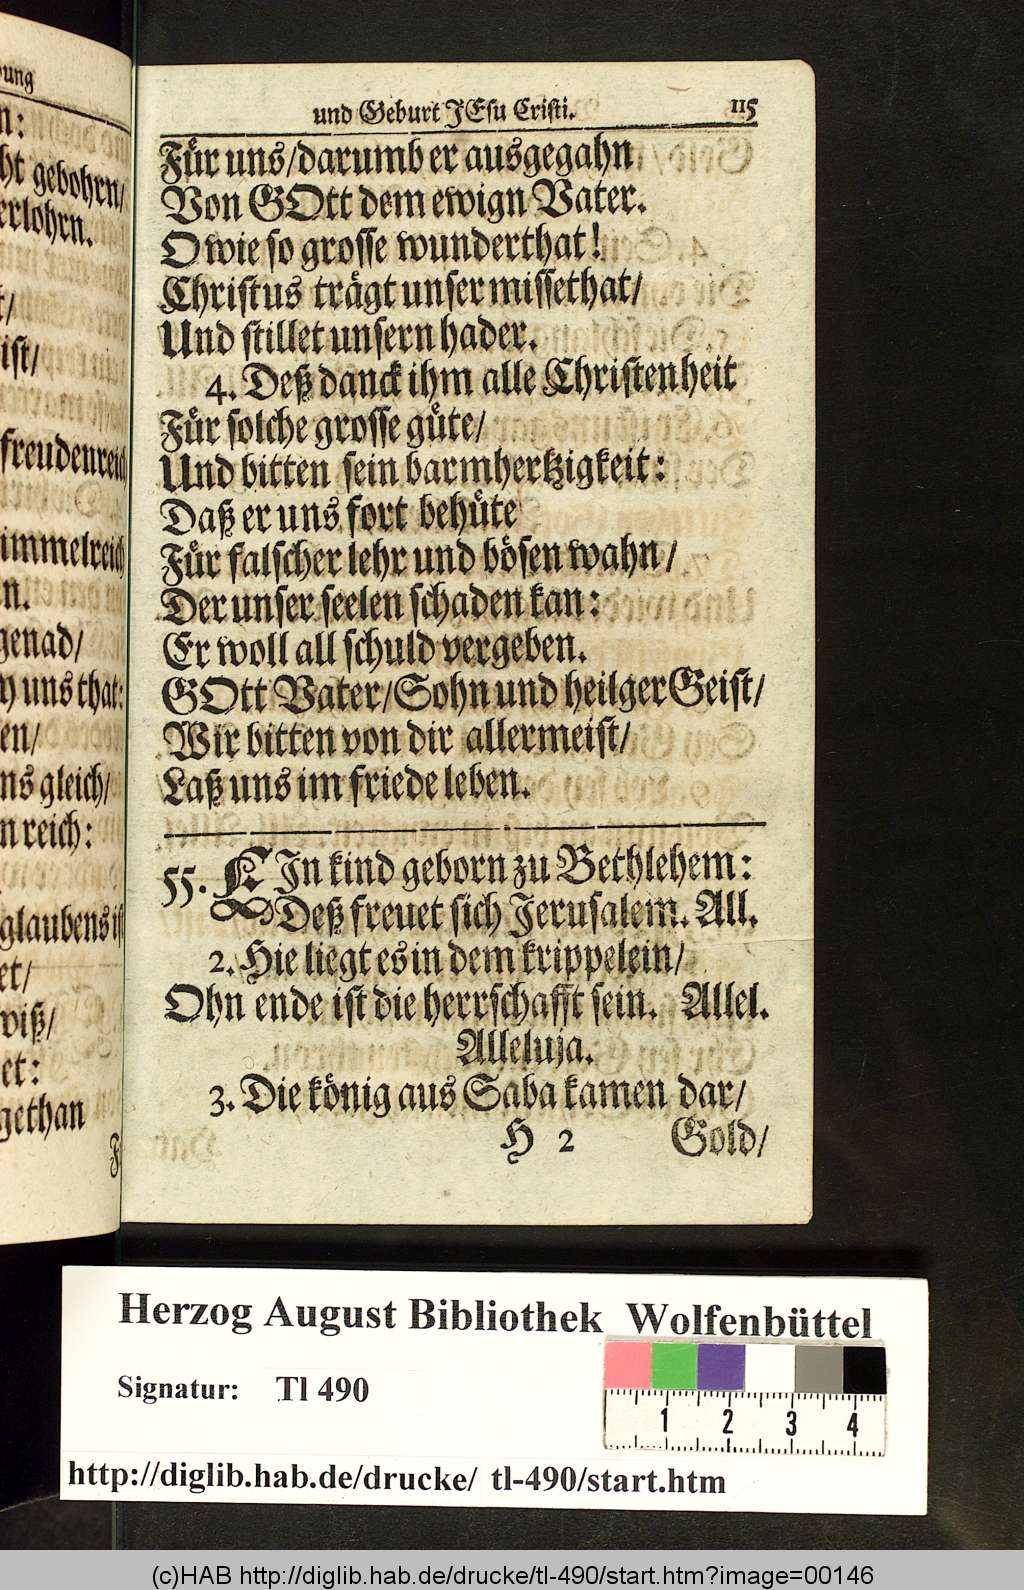 bung
n:
ht gebohrn/
erlohrn.
t/
ist/
freudenreich
immelreich
n.
genad/
y uns that:
en/
ns gleich/
n reich:
glaubens ist
et/
wiß/
et:
gethan
F
und Geburt JEsu Cristi. 115
Für uns/darumb er ausgegahn
Von GOtt dem ewign Vater.
O wie so grosse wunderthat!
Christus trägt unser missethat/
Und stillet unsern hader.
4. Deß danck ihm alle Christenheit
Für solche grosse güte/
Und bitten sein barmhertzigkeit:
Daß er uns fort behüte
Für falscher lehr und bösen wahn/
Der unser seelen schaden kan:
Er woll all schuld vergeben.
GOtt Vater/Sohn und heilger Geist/
Wir bitten von dir allermeist/
Laß uns im friede leben.
55. EIn kind geborn zu Bethlehem:
Deß freuet sich Jerusalem. All.
2. Hie liegt es in dem krippelein/
Ohn ende ist die herrschafft sein. Allel.
Alleluja.
3. Die könig aus Saba kamen dar/
H 2 Gold/
Herzog August Bibliothek Wolfenbüttel
Signatur: Tl 490
1 2 3 4
http://diglib.hab.de/drucke/ tl-490/start.htm
(c)HAB http://diglib.hab.de/drucke/tl-490/start.htm?image=00146